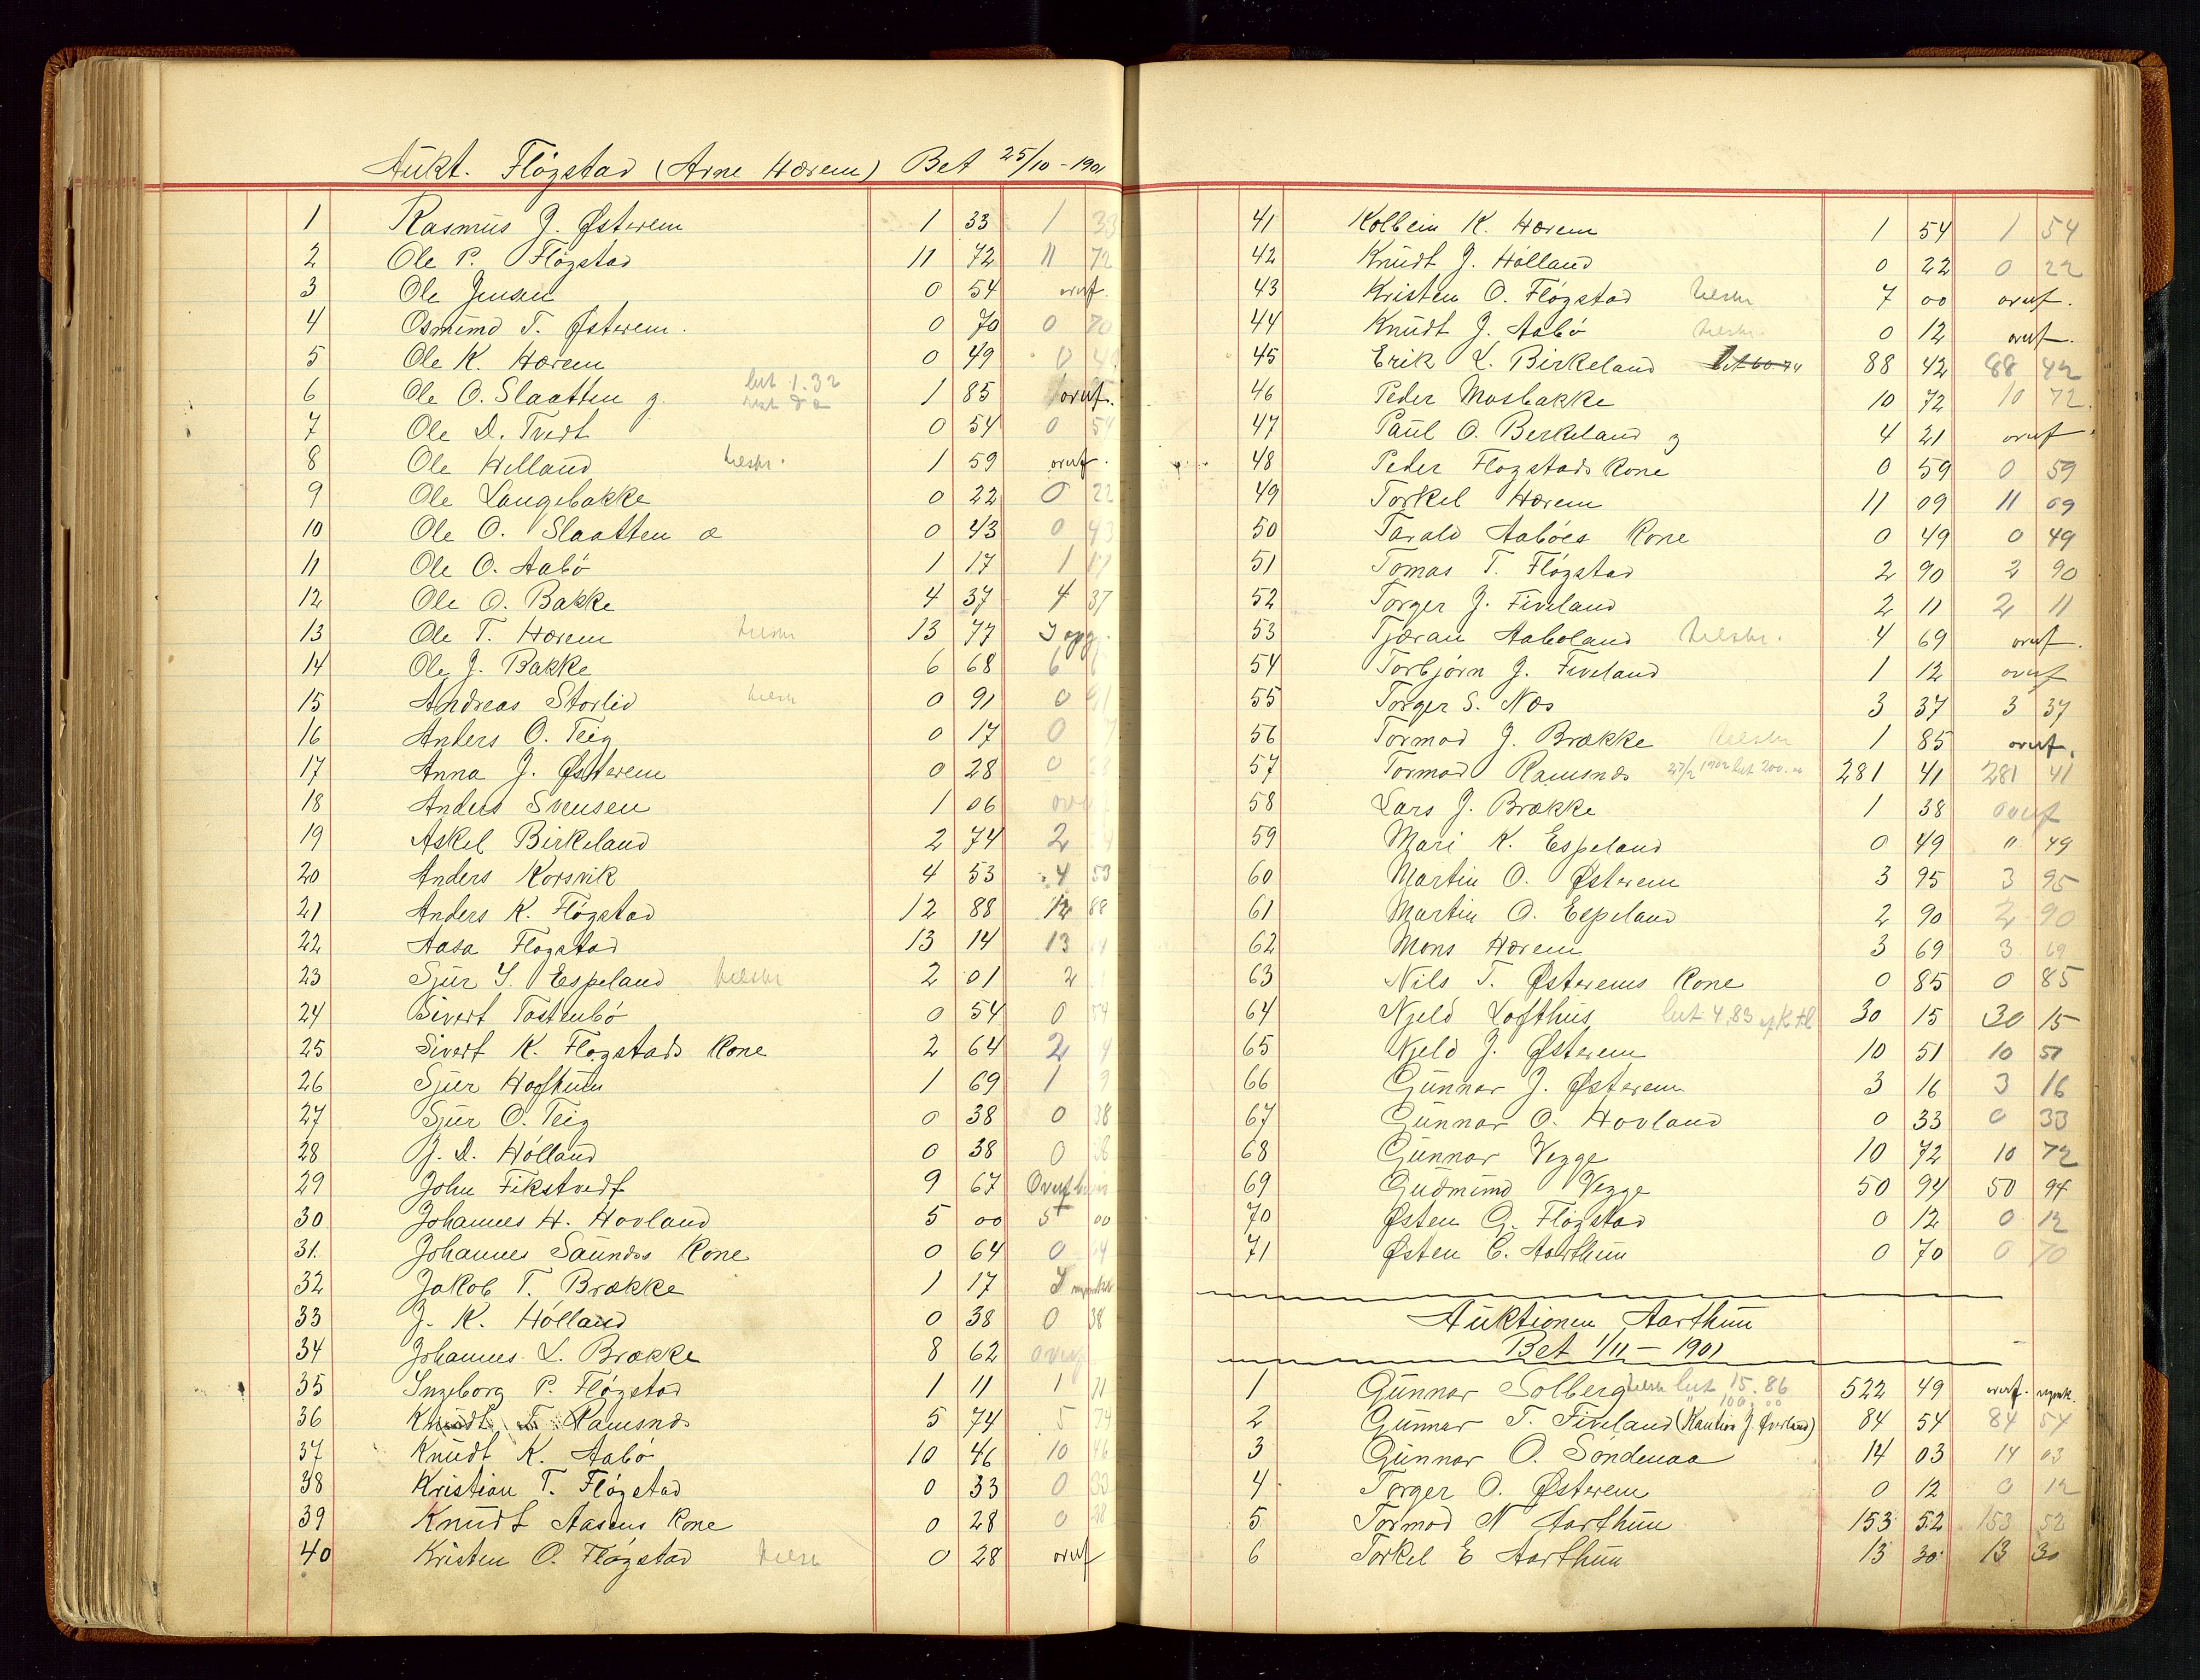 Aukt. Fløgstad (Arne Hærem) Bet 25/10 - 1901
1 Rasmus J. Østerem 1 33 1 33
2 Ole P. Fløgstad 11 72 11 72
3 Ole Jensen 0 54 overf.
4 Osmund T. Østerem. 0 70 0 70
5 Ole K. Hærem 0 49 0 49
6 Ole O. Slaatten y. bet 1.32 1 85 overf.
7 Ole D. Tvedt 0 54 0 54
8 Ole Helland tilskr. 1 59 overf.
9 Ole Langebakke 0 22 0 22
10 Ole O. Slaatten æ 0 43 0 43
11 Ole O. Aabø 1 17 1 17
12 Ole O. Bakke 4 37 4 37
13 Ole T. Hærem tilskr 13 77
14 Ole J. Bakke 6 68 6
15 Andreas Storlid tilskr 0 91 0 91
16 Anders O. Teig 0 17 0 7
17 Anna J. Østerem 0 28 0 28
18 Anders Svensen 1 06 over
19 Askel Birkeland 2 74 2 4
20 Anders Korsvik 4 53 4 53
21 Anders K. Fløgstad 12 88 12 88
22 Aasa Fløgstad 13 14 13 14
23 Sjur S. Espeland tilskr 2 01 2 1
24 Sivert Tostenbø 0 54 0 54
25 Sivert K. Fløgstads Kone 2 64 2 4
26 Sjur Hogthum 1 69 1 9
27 Sjur O. Teig 0 38 0 38
28 J. D. Hølland 0 38 0 38
29 John Fikstvedt 9 67 Overf
30 Johannes H. Hovland 5 00 5 00
31. Johannes Saundøs Kone 0 64 0 64
32 Jakob T. Brække 1 17
33 J. K. Hølland 0 38 0 38
34 Johannes L. Brække 8 62 overf
35 Ingeborg P. Fløgstad 1 11 1 11
36 Knudt T. Ramsnæs 5 74 5 74
37 Knudt K. Aabø 10 46 10 46
38 Kristian T. Fløgstad 0 33 0 33
39 Knudt Aasens Kone 0 28 0 28
40 Kristen O. Fløgstad tilskr 0 28 overf
41 Kolbein K. Hærem 1 54 1 54
42 Knudt J. Hølland 0 22 0 22
43 Kristen O. Fløgstad tilskr 7 00 overf.
44 Knudt J. Aabø tilskr. 0 12 overf.
45 Erik L. Birkeland 88 42 88 42
46 Peder Mosbakke 10 72 10 72.
47 Paul O. Berkeland y 4 21 overf
48 Peder Flogstads Kone 0 59 0 59
49 Torkel Hærem 11 09 11 09
50 Tarald Aabøes Kone 0 49 0 49
51 Tomas T. Fløgstad 2 90 2 90
52 Torger J. Fiveland 2 11 2 11
53 Tjæran Aaboland tilskr. 4 69 overf.
54 Torbjørn J. Fiveland 1 12 overf
55 Torger S. Næs 3 37 3 37
56 Tormod J. Brække tilskr 1 85 overf.
57 Tormod Ramsnæs 27/2 1902 bet 200.00 281 41 281 41
58 Lars J. Brække 1 38 overf
59 Mari K. Espeland 0 49 " 49
60 Martin O. Østerem 3 95 3 95
61 Martin O. Espeland 2 90 2 90
62 Mons Hærem 3 69 3 69
63 Nils T. Østerems Kone 0 85 0 85
64 Njeld Lofthus bet 4.83 30 15 30 15
65 Njeld J. Østerem 10 51 10 51
66 Gunnar J. Østerem 3 16 3 16
67 Gunnar O. Hovland 0 33 0 33
68 Gunnar Vegge 10 72 10 72
69 Gudmund Vegge 50 94 50 94
70 Østen G. Fløgstad 0 12 0 12
71 Østen E. Aarthun 0 70 0 70
Auktionen Aarthun
Bet 1/11 - 1901
1 Gunnar Solberg tilskr bet 15.86 522 49 overf.
" 100.00
2 Gunnar T. Fiveland (Kaution J. Øvrland) 84 54 84 54
3 Gunnar O. Søndenaa 14 03 14 03
4 Torger O. Østerem 0 12 0 12
5 Tormod N Aarthun 153 52 153 52
6 Torkel E Aarthun 13 30 13 30